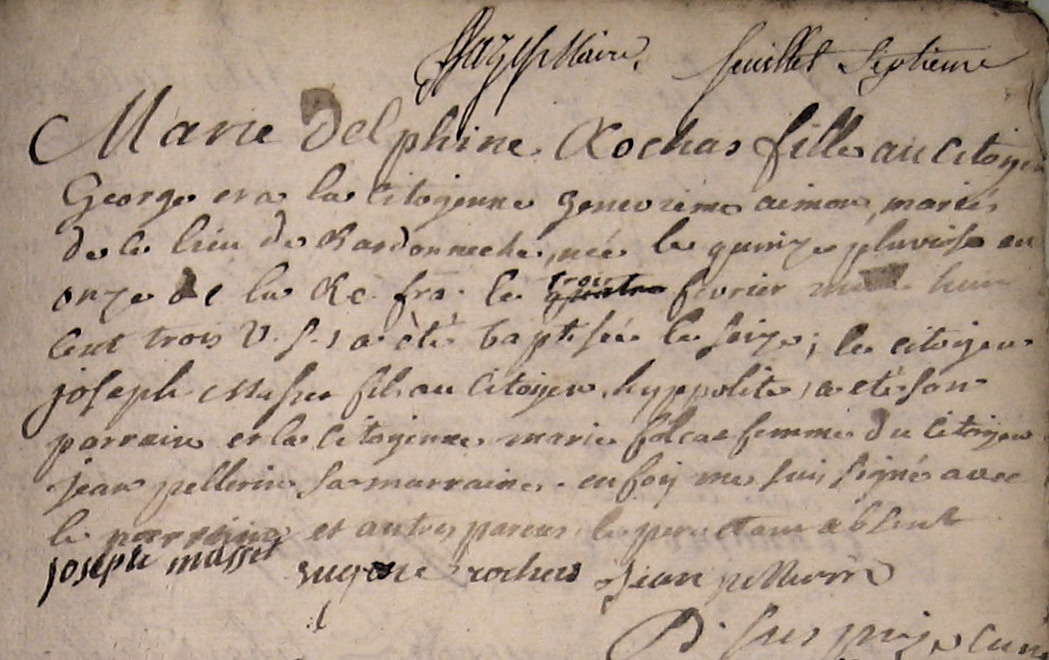 Maire. feuillet Septieme
Marie Delphine Rochas fille au Citoyen
George et a la Citoyenne Genevieme aimon, mariés
de ce lieu de Bardonneche, née le quinze pluviose an
onze de la Re. fra. le quatre trois fevrier mil huit
Cent trois V. S., a été baptisée le seize; le citoyen
joseph Masset fils au Citoyen hyppolite, a eté son
parrain et la Citoyenne marie folcat femme du Citoyen
jean pellerin sa marraine. en foy me suis signé avec
le parrain et autres parens, le pere etant absent
joseph masset rochas Jean pellerin
curé